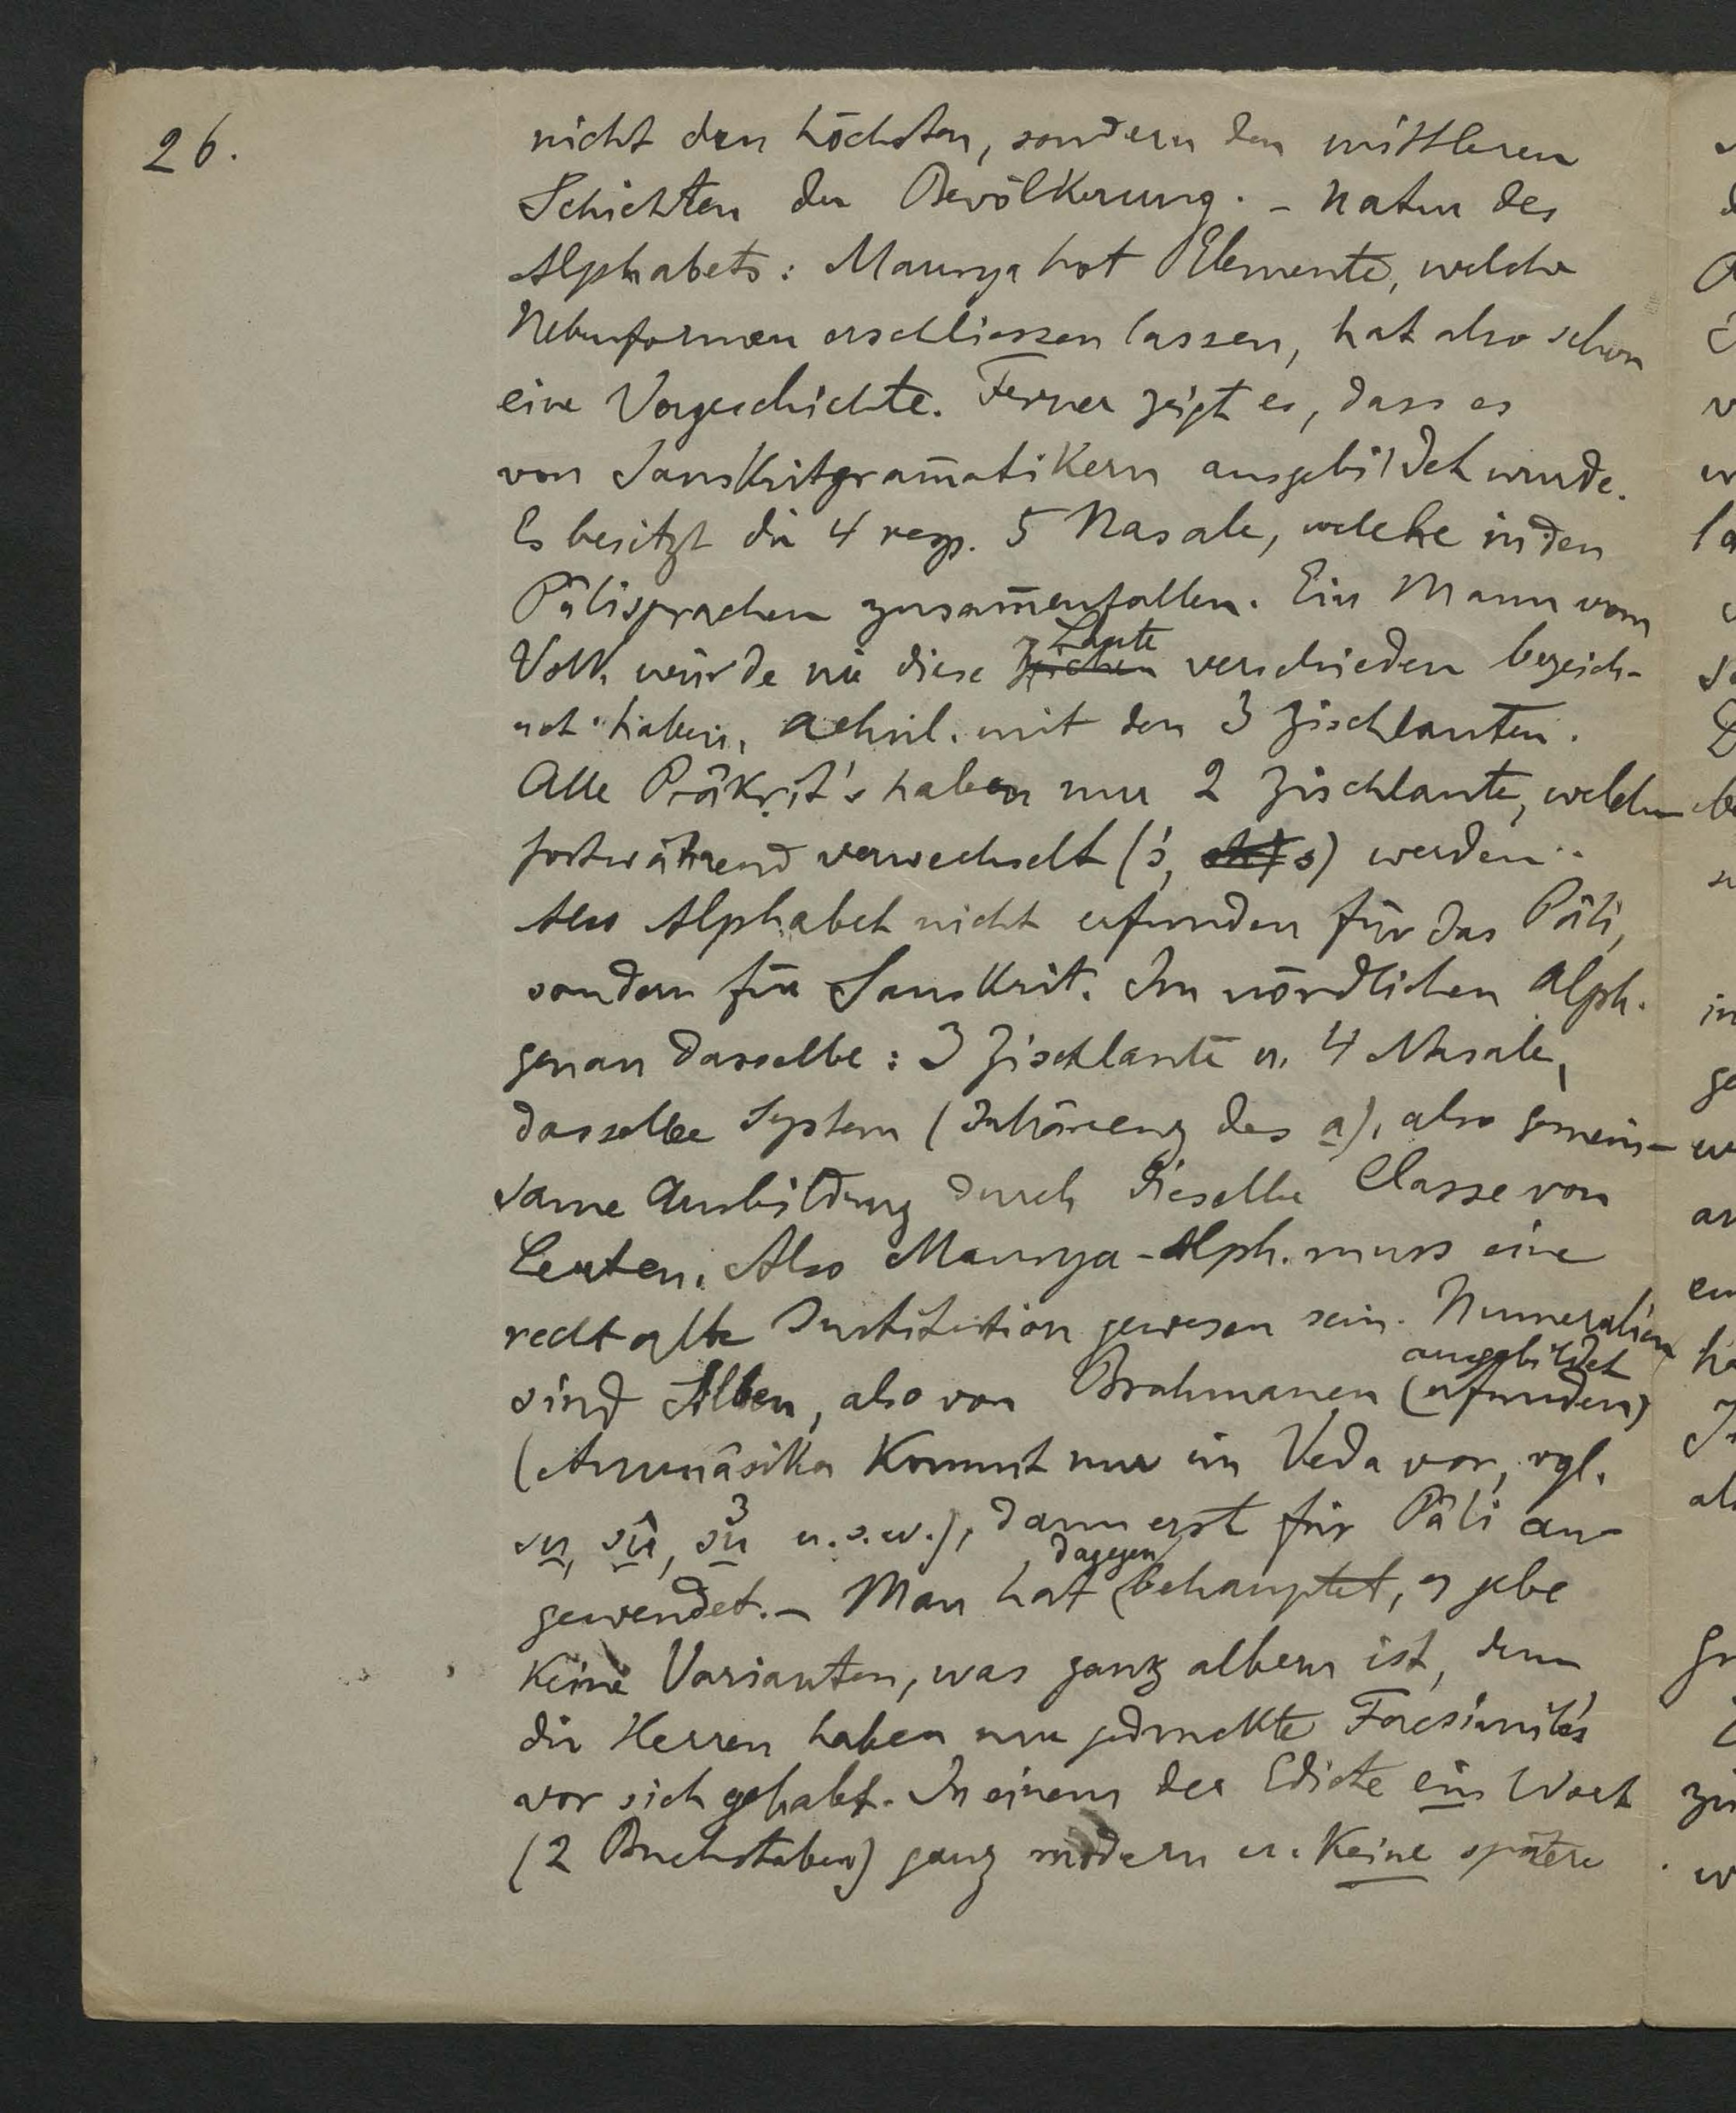 26.
nicht den höchsten, sondern den mittleren
Schichten der Bevölkerung. - Natur des
Alphabets: Maurya hat Elemente, welche
Nebenformen erschliessen lassen, hat also schon
eine Vorgeschichte. Ferner zeigt es, dass es
von Sanskritgram̄atikern ausgebildet wurde.
Es besitzt die 4 resp. 5 Nasale, welche in den
Pâlisprachen zusam̄enfallen. Ein Mann vom
Laute
Volk würde nie diese Zeichen verschieden bezeich-
net haben, aehnl. mit den 3 Zischlauten.
Alle Prâkṛit's haben nur 2 Zischlaute, welche
fortwährend verwechselt (ś, s) werden.
Also Alphabet nicht erfunden für das Pâli,
sondern für Sanskrit. Im nördlichen Alph.
genau dasselbe: 3 Zischlaute u. 4 Nasale,
dasselbe System (Inhärenz des a), also gemein-
same Ausbildung durch dieselbe Classe von
Leuten. Also Maurya-Alph. muss eine
recht alte Institution gewesen sein. Numeralien
ausgebildet
sind Silben, also von Brahmanen (erfunden)
(Anunâsika kommt nur im Veda vor, vgl.
su, sû, su3 u.s.w.), dann erst für Pâli an-
dagegen
gewendet. - Man hat behauptet, es gebe
keine Varianten, was ganz albern ist, denn
die Herren haben nur gedruckte Facsimiles
vor sich gehabt. In einem der Edicte ein Wort
(2 Buchstaben) ganz modern u. keine spätere